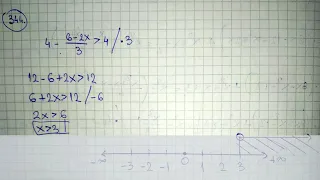 344.
4 - 6-2x/3 > 4 /·3
12-6+2x>12
6+2x>12 /-6
2x>6
x>3
-∞ -3 -2 -1 0 1 2 3 +∞